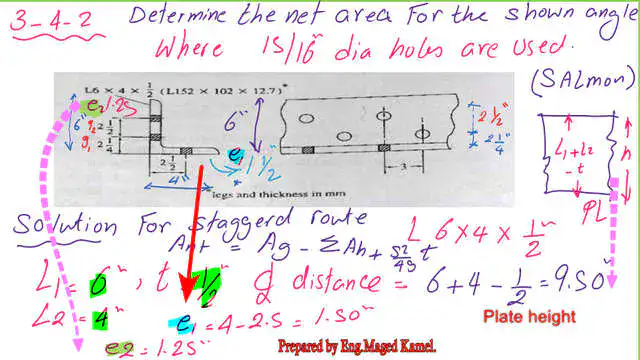 3-4-2 Determine the net area For the shown angle
Where 15/16" dia holes are used.
(SALmon)
L6 × 4 × 1/2 (L152 × 102 × 12.7)*
e2 1.25
6" g2 2 1/2
g1 2 1/4
2 1/2
4"
6"
e1 1 1/2"
3
2 1/2"
2 1/4"
legs and thickness in mm
L1+L2
-t
h
PL
Solution For staggerd route
L 6×4×1/2"
Ant = Ag - ΣAh + S2/4g t
L1 = 6", t 1/2" ₵ distance = 6+4-1/2 = 9.50"
L2 = 4" e1 = 4-2.5 = 1.50"
Plate height
e2 = 1.25"
Prepared by Eng.Maged Kamel.